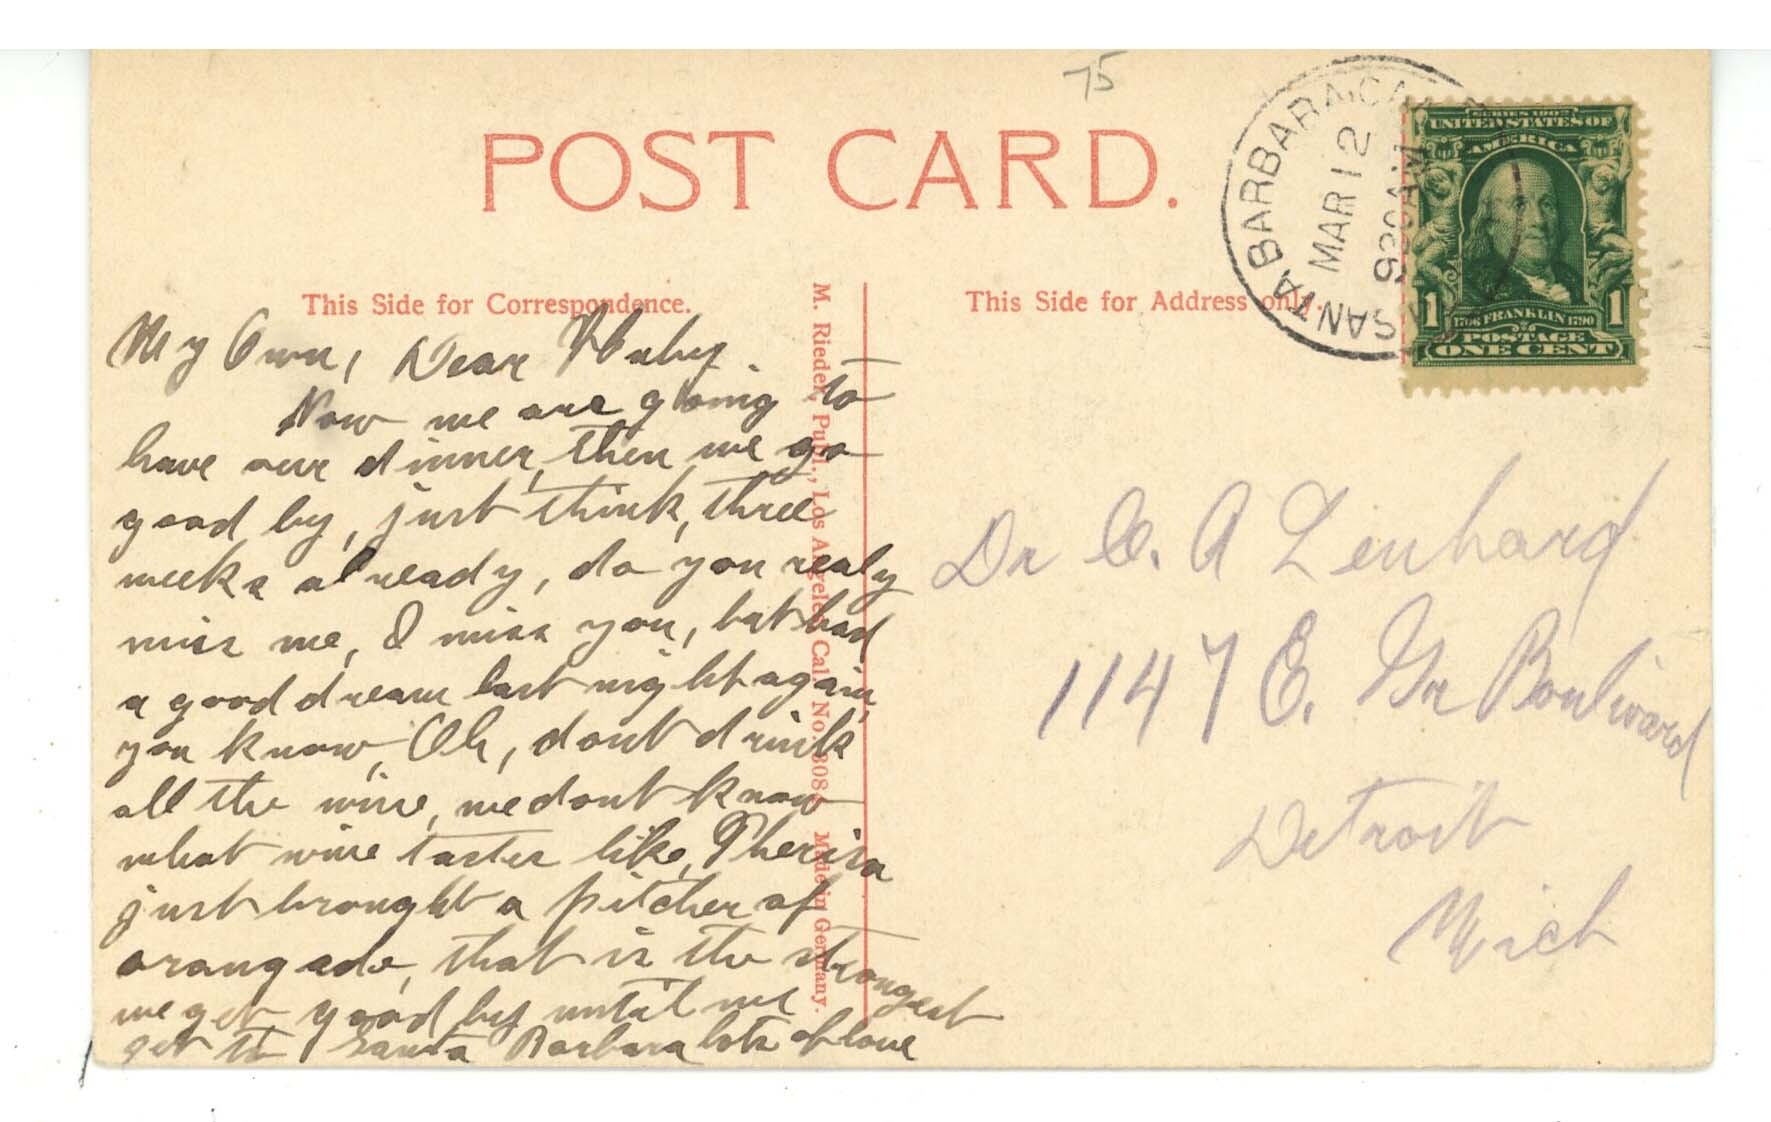 75
POST CARD.
SANTA BARBARA, CAL
MAR 12
630 AM
SERIES 1902
UNITED STATES OF
AMERICA
1706 FRANKLIN 1790
1 1
POSTAGE
ONE CENT
This Side for Correspondence.
This Side for Address only.
M. Rieder, Publ., Los Angeles, Cal. No. 308 Made in Germany.
My Own, Dear Huby
Now we are going to
have our dinner, then we go
good by, just think, three
weeks already, do you realy
miss me, I miss you, but had
a good dream last night again,
you know, Oh, dont drink
all the wine, we dont know
what wine tastes like, Theresa
just brought a pitcher of
orangade, that is the strongest
we get good by until we
get to Santa Barbara lots of love
Dr C. A Lenhard
1147 E. Gr Boulivard
Detroit
Mich